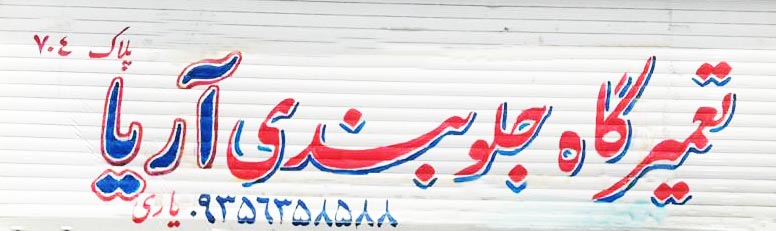 پلاک ۷۰۴
تعمیرگاه جلوبندی آریا
۰۹۳۵۶۲۵۸۵۸۸ یاری